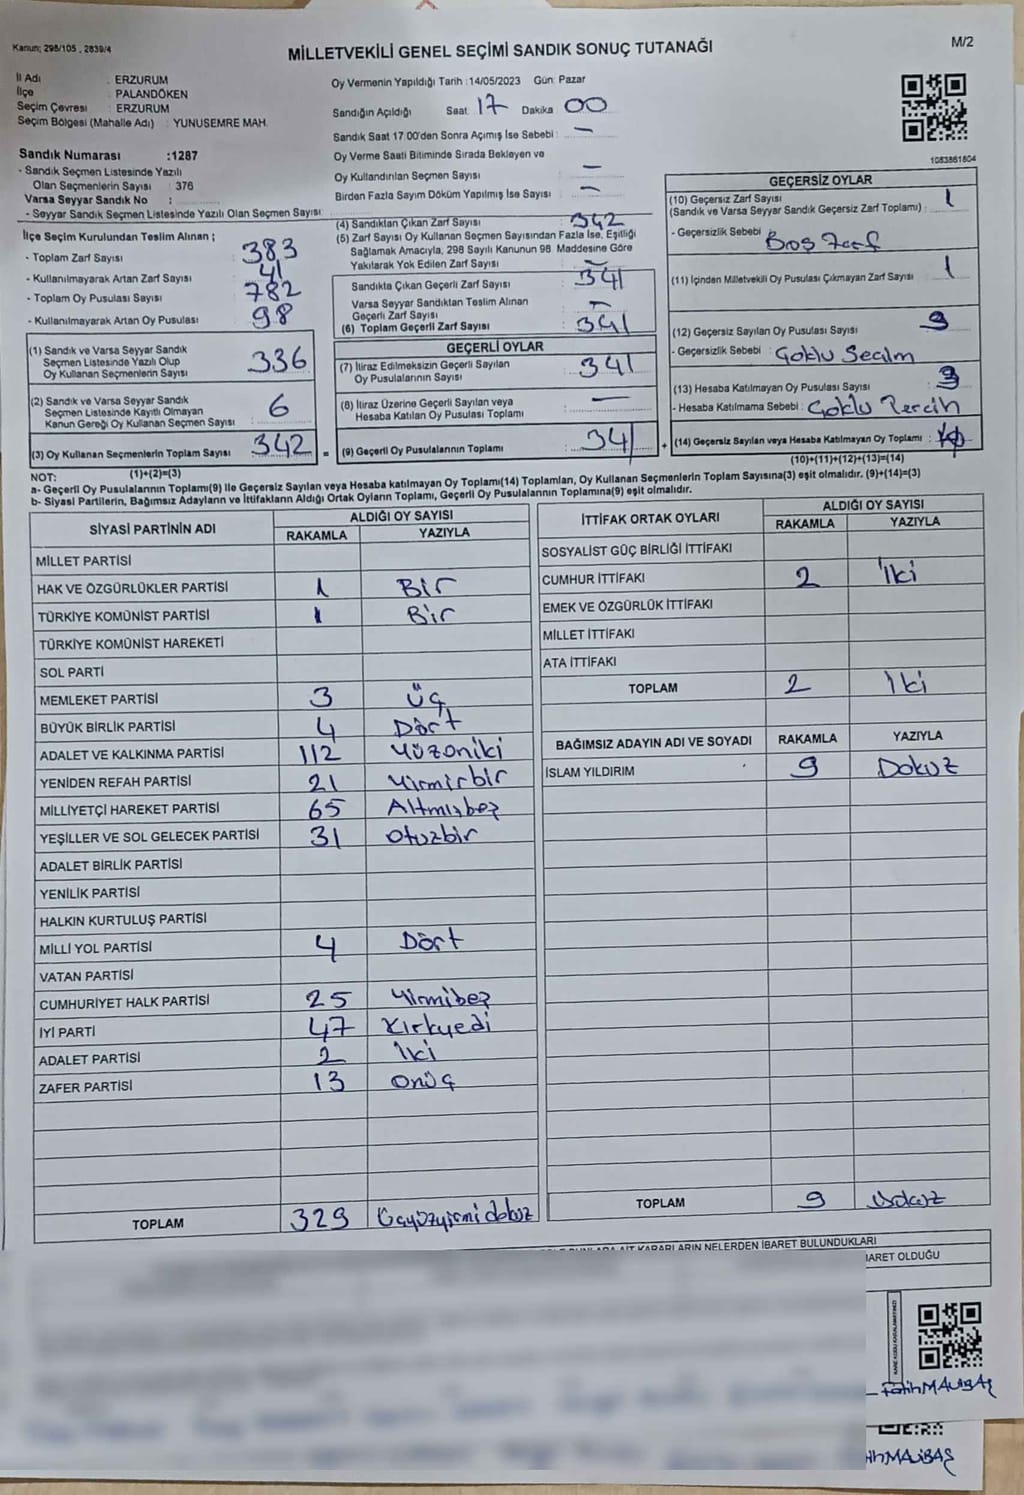 Kanun; 298/105 , 2839/4
MİLLETVEKİLİ GENEL SEÇİMİ SANDIK SONUÇ TUTANAĞI
M/2
İl Adı : ERZURUM
İlçe : PALANDÖKEN
Seçim Çevresi : ERZURUM
Seçim Bölgesi (Mahalle Adı) : YUNUSEMRE MAH.
Sandık Numarası :1287
- Sandık Seçmen Listesinde Yazılı
Olan Seçmenlerin Sayısı : 376
Varsa Seyyar Sandık No :
- Seyyar Sandık Seçmen Listesinde Yazılı Olan Seçmen Sayısı:
Oy Vermenin Yapıldığı Tarih :14/05/2023 Gün: Pazar
Sandığın Açıldığı Saat: 17 Dakika 00
Sandık Saat 17.00'den Sonra Açımış İse Sebebi : —
Oy Verme Saati Bitiminde Sırada Bekleyen ve
Oy Kullandırılan Seçmen Sayısı : —
Birden Fazla Sayım Döküm Yapılmış İse Sayısı : —
1083861804
İlçe Seçim Kurulundan Teslim Alınan ;
- Toplam Zarf Sayısı : 383
- Kullanılmayarak Artan Zarf Sayısı : 41
- Toplam Oy Pusulası Sayısı : 782
- Kullanılmayarak Artan Oy Pusulası : 98
(1) Sandık ve Varsa Seyyar Sandık
Seçmen Listesinde Yazılı Olup
Oy Kullanan Seçmenlerin Sayısı : 336
(2) Sandık ve Varsa Seyyar Sandık
Seçmen Listesinde Kayıtlı Olmayan
Kanun Gereği Oy Kullanan Seçmen Sayısı : 6
(3) Oy Kullanan Seçmenlerin Toplam Sayısı : 342 =
(1)+(2)=(3)
(4) Sandıktan Çıkan Zarf Sayısı : 342
(5) Zarf Sayısı Oy Kullanan Seçmen Sayısından Fazla İse, Eşitliği
Sağlamak Amacıyla, 298 Sayılı Kanunun 98. Maddesine Göre
Yakılarak Yok Edilen Zarf Sayısı : —
Sandıkta Çıkan Geçerli Zarf Sayısı : 341
Varsa Seyyar Sandıktan Teslim Alınan
Geçerli Zarf Sayısı : —
(6) Toplam Geçerli Zarf Sayısı : 341
GEÇERLİ OYLAR
(7) İtiraz Edilmeksizin Geçerli Sayılan
Oy Pusulalarının Sayısı : 341
(8) İtiraz Üzerine Geçerli Sayılan veya
Hesaba Katılan Oy Pusulası Toplamı : —
(9) Geçerli Oy Pusulalarının Toplamı : 341 +
GEÇERSİZ OYLAR
(10) Geçersiz Zarf Sayısı
(Sandık ve Varsa Seyyar Sandık Geçersiz Zarf Toplamı) : 1
- Geçersiz Sebebi : Boş Zarf
(11) İçinden Milletvekili Oy Pusulası Çıkmayan Zarf Sayısı : 1
(12) Geçersiz Sayılan Oy Pusulası Sayısı : 9
- Geçersizlik Sebebi : Çoklu Seçim
(13) Hesaba Katılmayan Oy Pusulası Sayısı :
- Hesaba Katılmama Sebebi : Çoklu Tercih
(14) Geçersiz Sayılan veya Hesaba Katılmayan Oy Toplamı :
(10)+(11)+(12)+(13)=(14)
NOT:
a- Geçerli Oy Pusulalarının Toplamı(9) ile Geçersiz Sayılan veya Hesaba katılmayan Oy Toplamı(14) Toplamları, Oy Kullanan Seçmenlerin Toplam Sayısına(3) eşit olmalıdır. (9)+(14)=(3)
b- Siyasi Partilerin, Bağımsız Adayların ve İttifakların Aldığı Ortak Oyların Toplamı, Geçerli Oy Pusulalarının Toplamına(9) eşit olmalıdır.
SİYASİ PARTİNİN ADI ALDIĞI OY SAYISI
RAKAMLA YAZIYLA
MİLLET PARTİSİ
HAK VE ÖZGÜRLÜKLER PARTİSİ 1 Bir
TÜRKİYE KOMÜNİST PARTİSİ 1 Bir
TÜRKİYE KOMÜNİST HAREKETİ
SOL PARTİ
MEMLEKET PARTİSİ 3 Üç
BÜYÜK BİRLİK PARTİSİ 4 Dört
ADALET VE KALKINMA PARTİSİ 112 Yüzoniki
YENİDEN REFAH PARTİSİ 21 Yirmirbir
MİLLİYETÇİ HAREKET PARTİSİ 65 Altmışbeş
YEŞİLLER VE SOL GELECEK PARTİSİ 31 Otuzbir
ADALET BİRLİK PARTİSİ
YENİLİK PARTİSİ
HALKIN KURTULUŞ PARTİSİ
MİLLİ YOL PARTİSİ 4 Dört
VATAN PARTİSİ
CUMHURİYET HALK PARTİSİ 25 Yirmibeş
İYİ PARTİ 47 Kırkyedi
ADALET PARTİSİ 2 İki
ZAFER PARTİSİ 13 Onüç
TOPLAM 329 Üçyüzyirmidokuz
İTTİFAK ORTAK OYLARI ALDIĞI OY SAYISI
RAKAMLA YAZIYLA
SOSYALİST GÜÇ BİRLİĞİ İTTİFAKI
CUMHUR İTTİFAKI 2 İki
EMEK VE ÖZGÜRLÜK İTTİFAKI
MİLLET İTTİFAKI
ATA İTTİFAKI
TOPLAM 2 İki
BAĞIMSIZ ADAYIN ADI VE SOYADI RAKAMLA YAZIYLA
İSLAM YILDIRIM 9 Dokuz
TOPLAM 9 Dokuz
KARARLARIN NELERDEN İBARET BULUNDUKLARI
İBARET OLDUĞU
Fatih MALİBAŞ